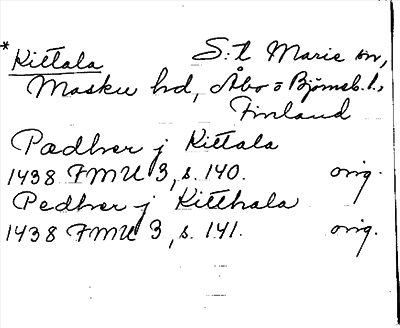 *Kittala S:t Marie sn,
Masku hd, Åbo o Björneb. l.,
Finland
Pædher j Kittala
1438 FMU 3, s. 140. orig.
Pedher j Kitthala
1438 FMU 3, s. 141. orig.